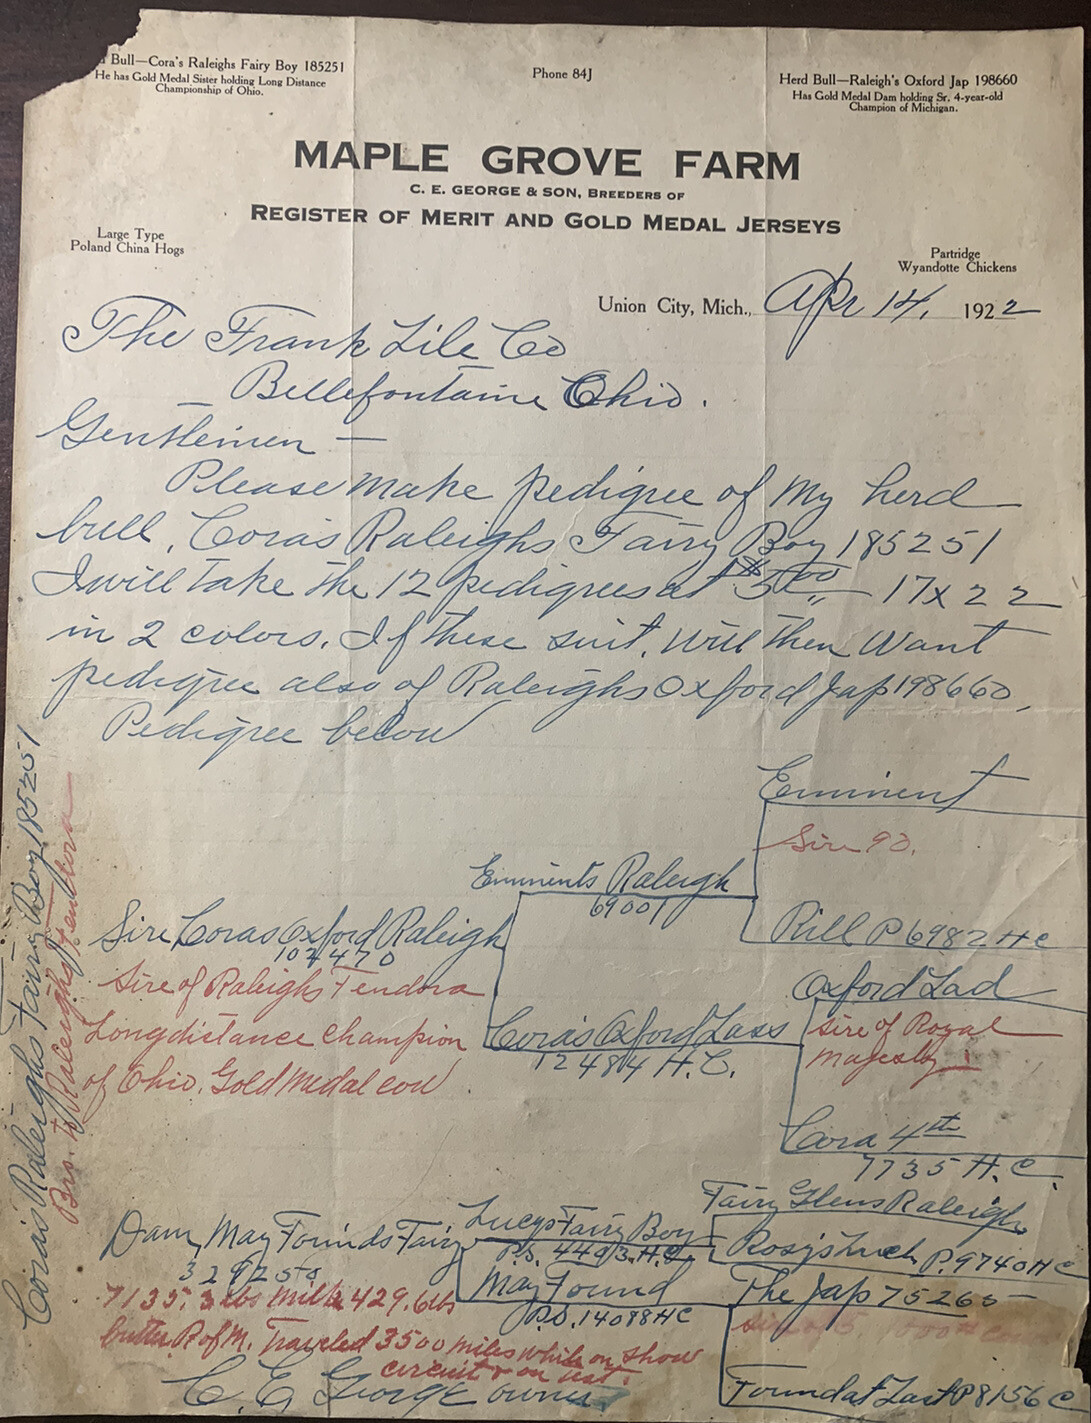 Bull—Cora's Raleighs Fairy Boy 185251
He has Gold Medal Sister holding Long Distance
Championship of Ohio.
Phone 84J
Herd Bull—Raleigh's Oxford Jap 198660
Has Gold Medal Dam holding Sr. 4-year-old
Champion of Michigan.
MAPLE GROVE FARM
C. E. GEORGE & SON, BREEDERS OF
REGISTER OF MERIT AND GOLD MEDAL JERSEYS
Large Type
Poland China Hogs
Partridge
Wyandotte Chickens
Union City, Mich., Apr 14, 1922
The Frank Lile Co
Bellefontaine Ohio.
Gentlemen —
Please make pedigree of my herd
bull, Cora's Raleighs Fairy Boy 185251
I will take the 12 pedigrees at $5.00 17x22
in 2 colors. If these suit, will then want
pedigree also of Raleighs Oxford Jap 198660.
Pedigree below
Cora's Raleighs Fairy Boy 185251
Bro. to Raleighs Tendora
Eminent
Sire 90.
Eminents Raleigh
69001
Rill P 6982 HC
Sire Coras Oxford Raleigh
102470
Sire of Raleighs Tendora
Longdistance champion
of Ohio. Gold Medal cow
Oxford Lad
Sire of Royal
Majesty
Cora's Oxford Lass
12484 H.C.
Cora 4th
7735 H.C.
Fairy Glens Raleigh
Lucys Fairy Boy
P.S. 4493 H.C.
Rosys Luck P.9740 HC
Dam, May Founds Fairy
7135.3 lbs Milk 429.6 lbs
butter R of M. Traveled 3500 miles while on show
circuit & on test.
May Found
P.S. 14088 HC
The Jap 75265
Sire of
Foundat Last P8156 C
C. E. George owner